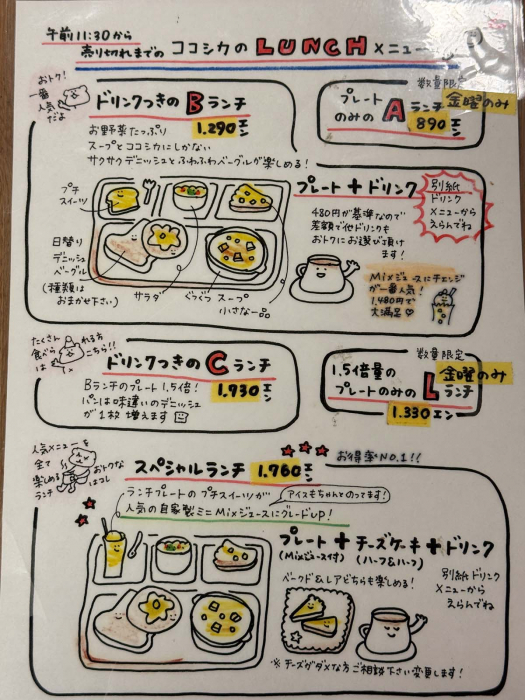 午前11:30から
売り切れまでの ココシカの LUNCH メニュー
おトク!
一番
人気
だよ
ドリンクつきの B ランチ
1.290エン
お野菜たっぷり
スープとココシカにしかない
サクサクデニッシュとふわふわベーグルが楽しめる!
数量限定
プレート
のみの A ランチ
金曜のみ
890エン
プチ
スイーツ
日替り
デニッシュ
ベーグル
(種類は
おまかせ下さい)
サラダ
ぐつぐつ スープ
小さな一品
プレート + ドリンク
別紙
ドリンク
メニューから
えらんでね
480円が基準なので
差額で他ドリンクも
おトクにお選び頂け
ます!
Mixジュースにチェンジ
が一番人気!
1.480円で
大満足♡
たくさん
食べられる方
は こちら!!
ドリンクつきの C ランチ
Bランチのプレート1.5倍!
パンは味違いのデニッシュ
が1枚 増えます
1.930エン
数量限定
1.5倍量の
プレートのみの L ランチ
金曜のみ
1.330エン
人気メニューを
全て
楽しめる
ランチ
おトクな
はコレ
スペシャルランチ 1.760エン
お得率No.1!!
ランチプレートのプチスイーツが
アイスもちゃんとのってます!
人気の自家製ミニMixジュースにグレードUP!
プレート + チーズケーキ + ドリンク
(Mixジュース付) (ハーフ&ハーフ)
ベークド&レアどちらも楽しめる!
別紙ドリンク
メニューから
えらんでね
※チーズがダメな方ご相談下さい変更します!